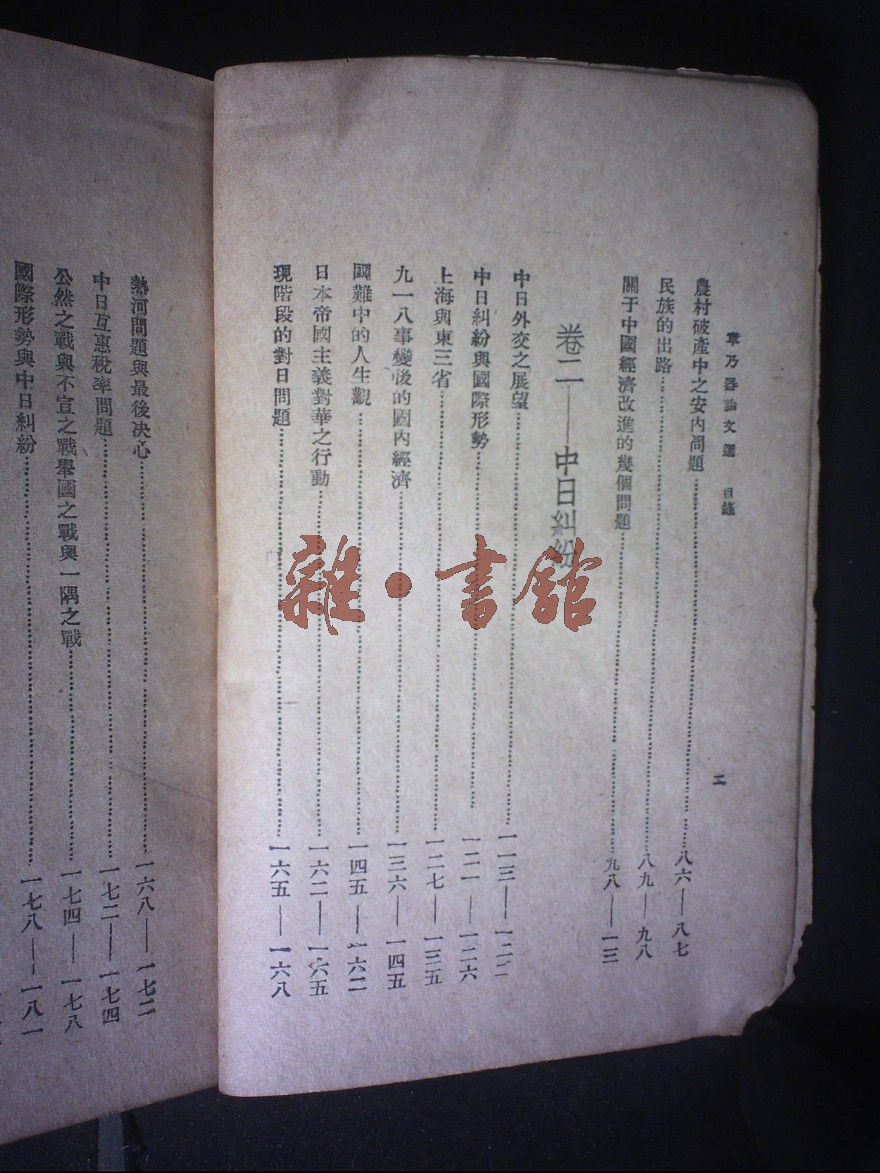 章乃器論文選　目錄　二
農村破產中之安內問題……八六——八七
民族的出路……八九——九八
關于中國經濟改進的幾個問題……九八——一三
卷二——中日糾紛
中日外交之展望……一一三——一二二
中日糾紛與國際形勢……一二一——一二六
上海與東三省……一二七——一三五
九一八事變後的國內經濟……一三六——一四五
國難中的人生觀……一四五——一六二
日本帝國主義對華之行動……一六二——一六五
現階段的對日問題……一六五——一六八
熱河問題與最後决心……一六八——一七二
中日互惠稅率問題……一七二——一七四
公然之戰與不宣之戰舉國之戰與一隅之戰……一七四——一七八
國際形勢與中日糾紛……一七八——一八一
雜·書館